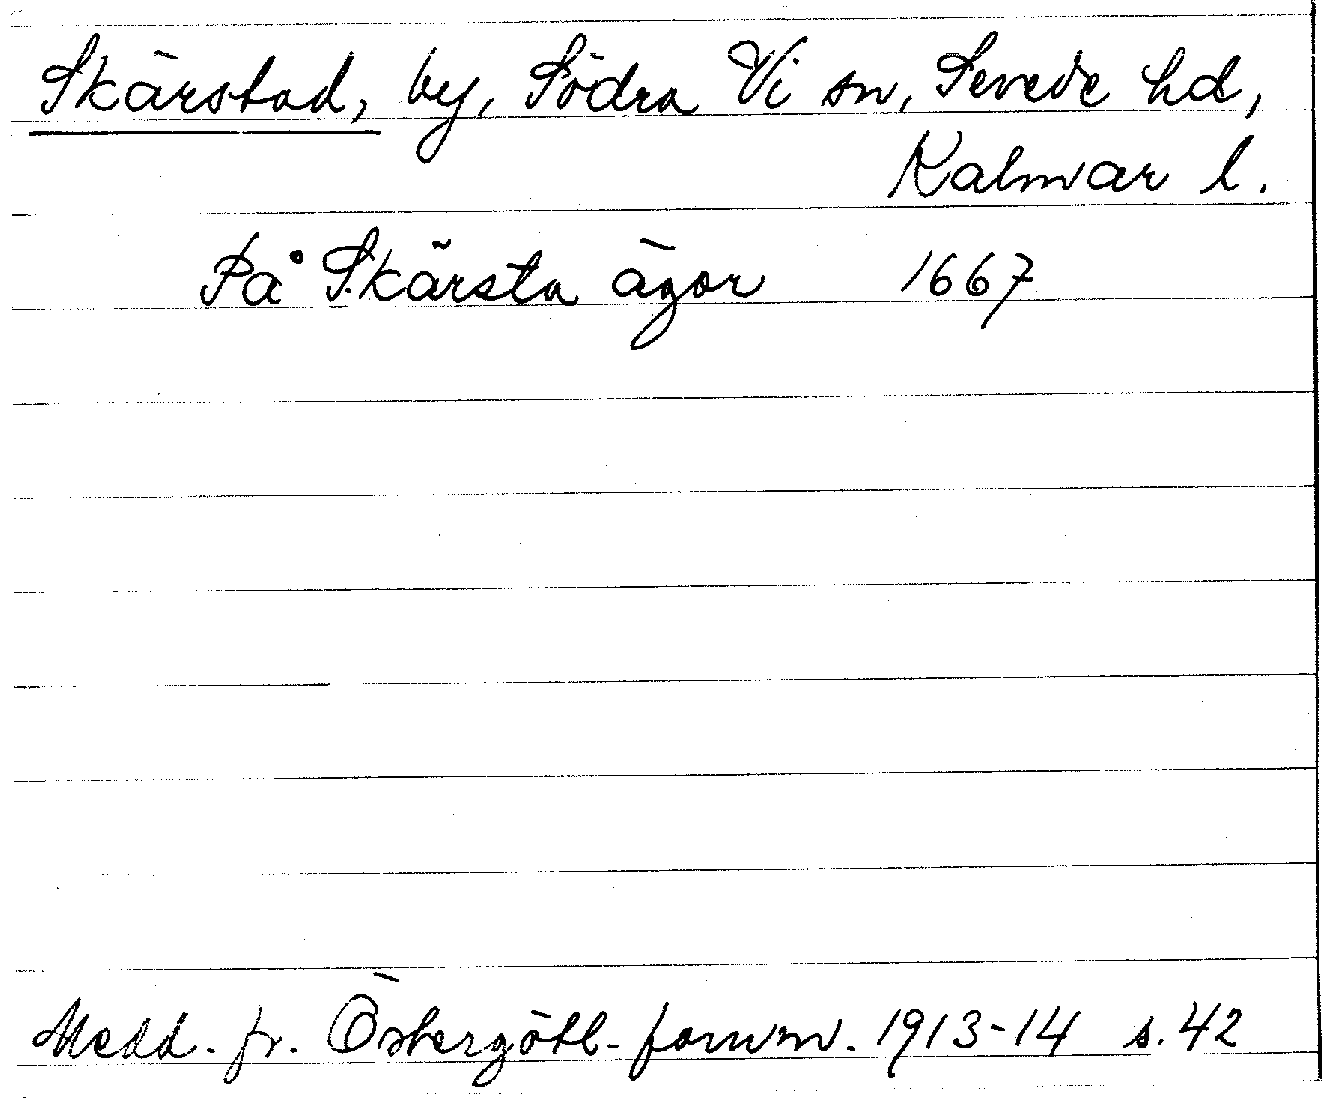 Skärstad, by, Södra Vi sn, Sevede hd,
Kalmar l.
På Skärsta ägor 1667
Medd. fr. Östergötl. fornm. 1913-14 s. 42